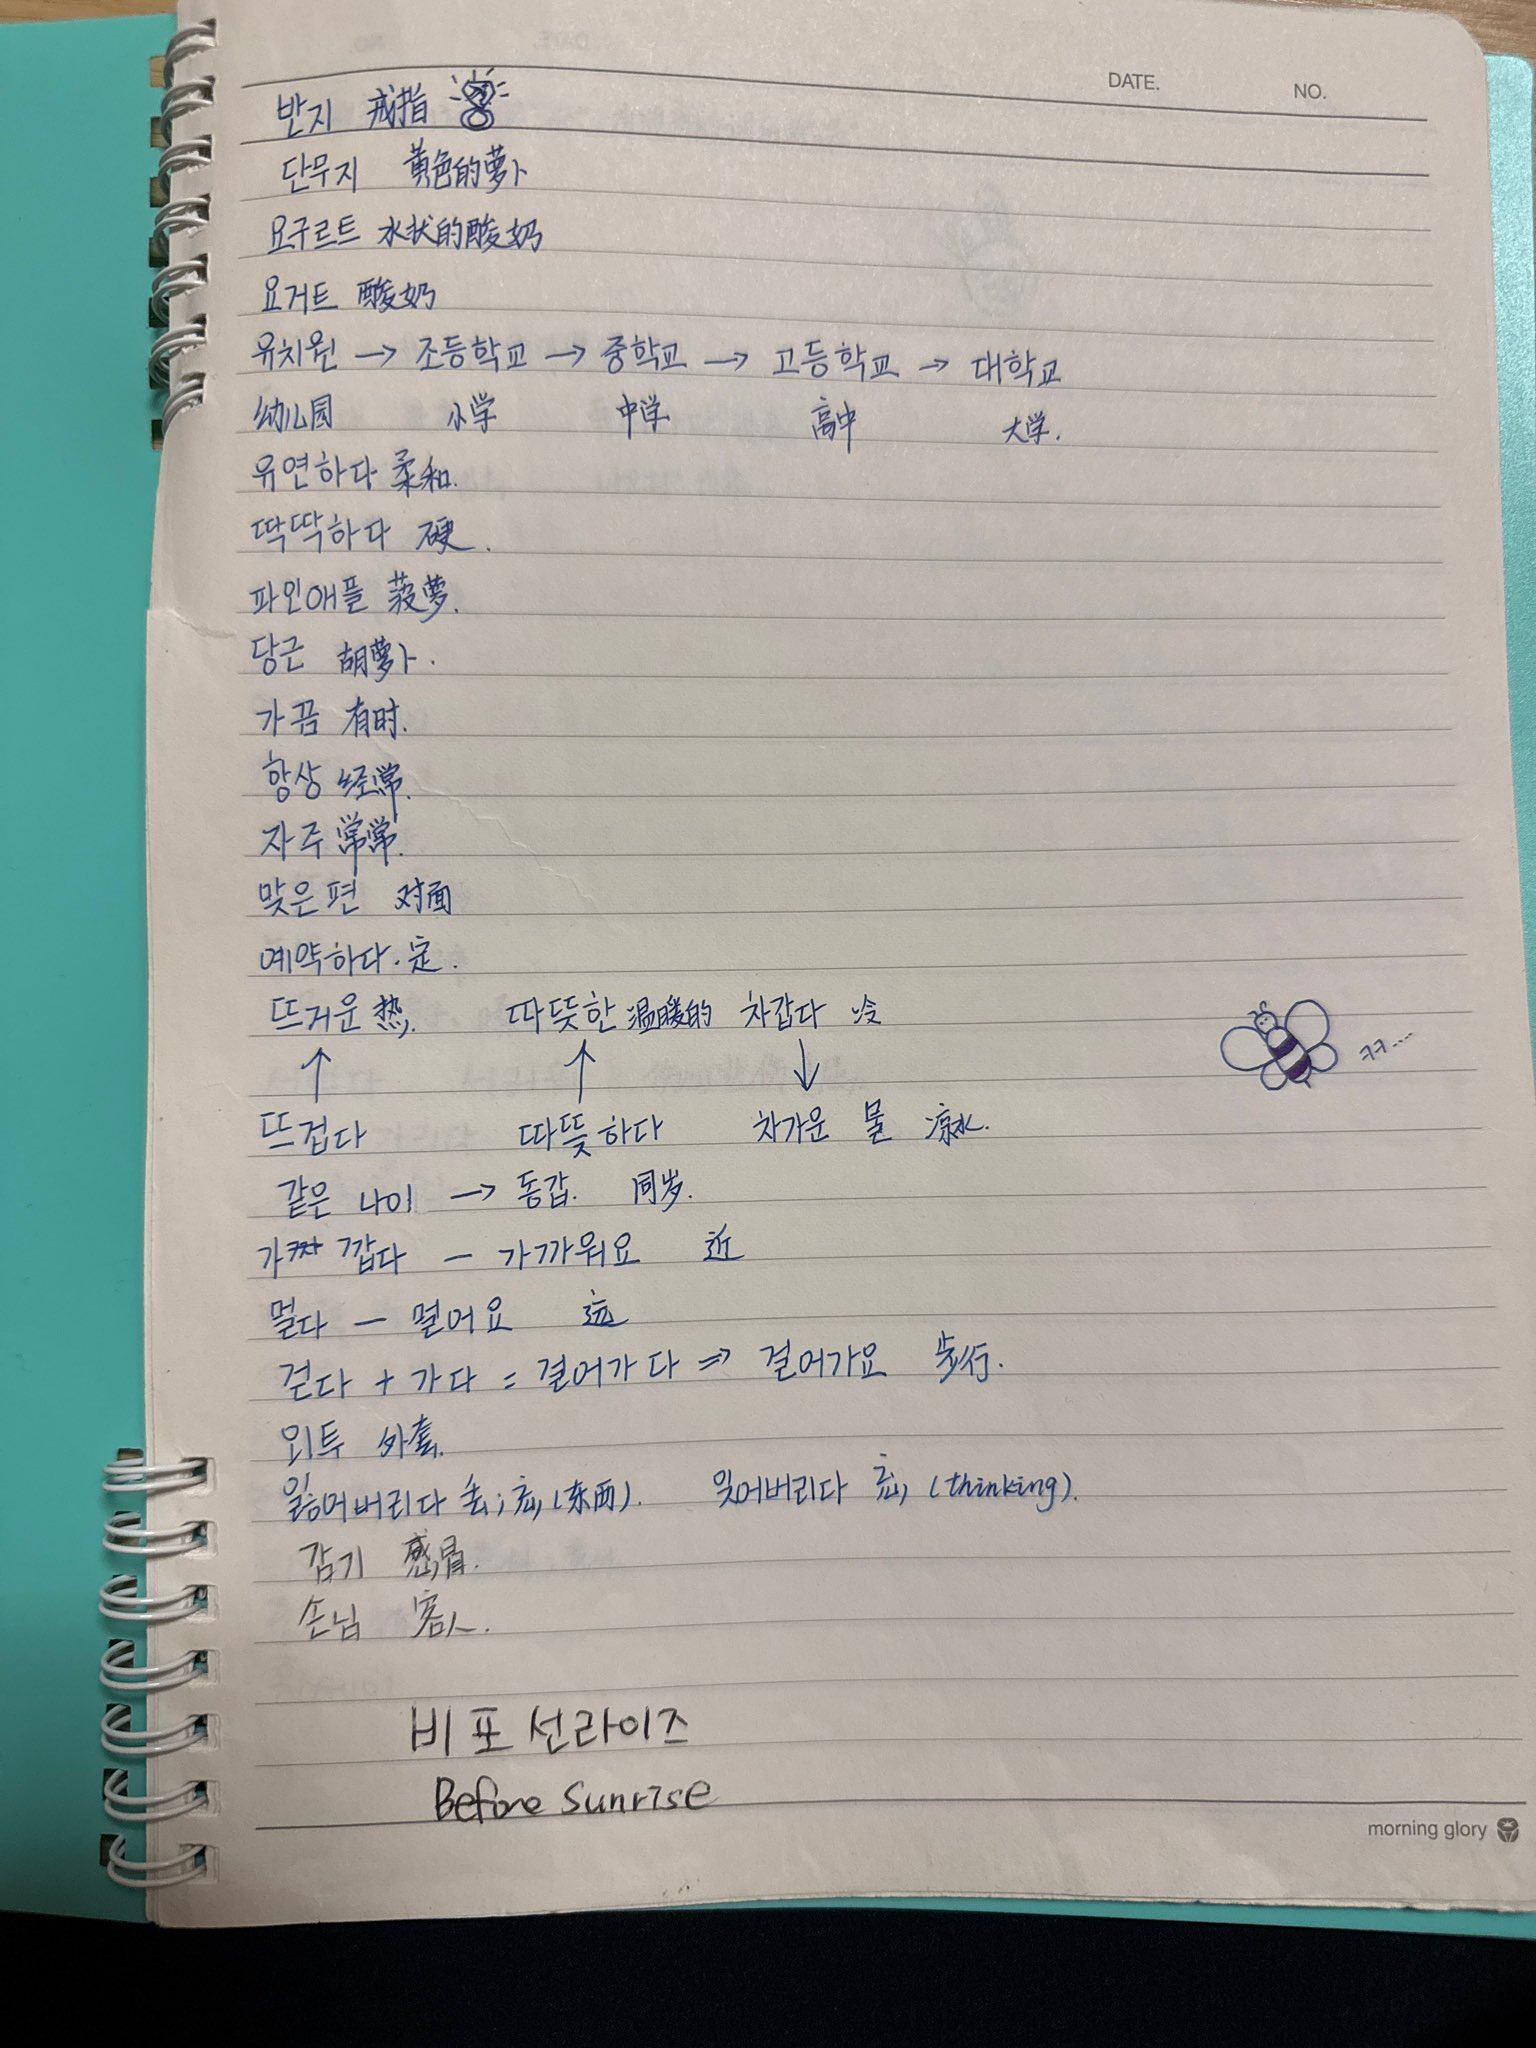 DATE.
NO.
반지 戒指
단무지 黄色的萝卜
요구르트 水状的酸奶
요거트 酸奶
유치원 → 초등학교 → 중학교 → 고등학교 → 대학교
幼儿园 小学 中学 高中 大学.
유연하다 柔和.
딱딱하다 硬.
파인애플 菠萝.
당근 胡萝卜.
가끔 有时.
항상 经常.
자주 常常.
맞은편 对面
예약하다. 定.
뜨거운 热. 따뜻한 温暖的 차갑다 冷
ㅋㅋ....
뜨겁다 따뜻하다 차가운 물 凉水.
같은 나이 → 동갑. 同岁.
가깝다 - 가까워요 近
멀다 - 멀어요 远
걷다 + 가다 = 걸어가다 ⇒ 걸어가요 步行.
외투 外套.
잃어버리다 丢; 忘, (东西). 잊어버리다 忘, (thinking).
감기 感冒.
손님 客人.
비포선라이즈
Before sunrise
morning glory